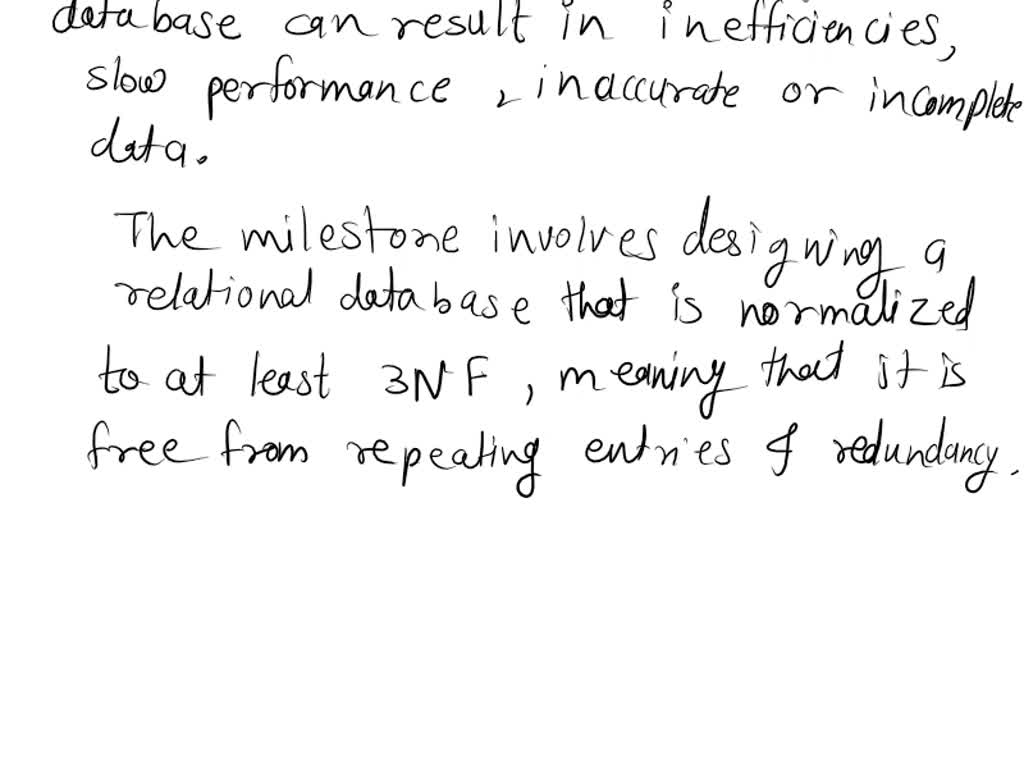 database can result in inefficiencies,
slow performance, inaccurate or incomplete
data.
The milestone involves designing a
relational database that is normalized
to at least 3NF, meaning that it is
free from repeating entries & redundancy.